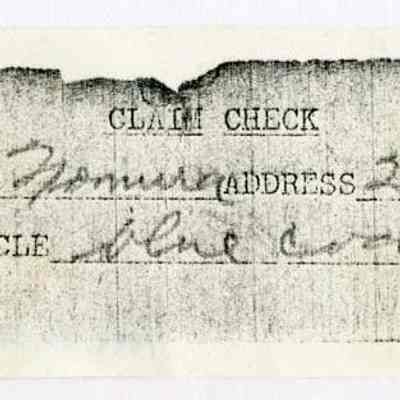 CLAIM CHECK
Nomura ADDRESS 2
CLE blue co